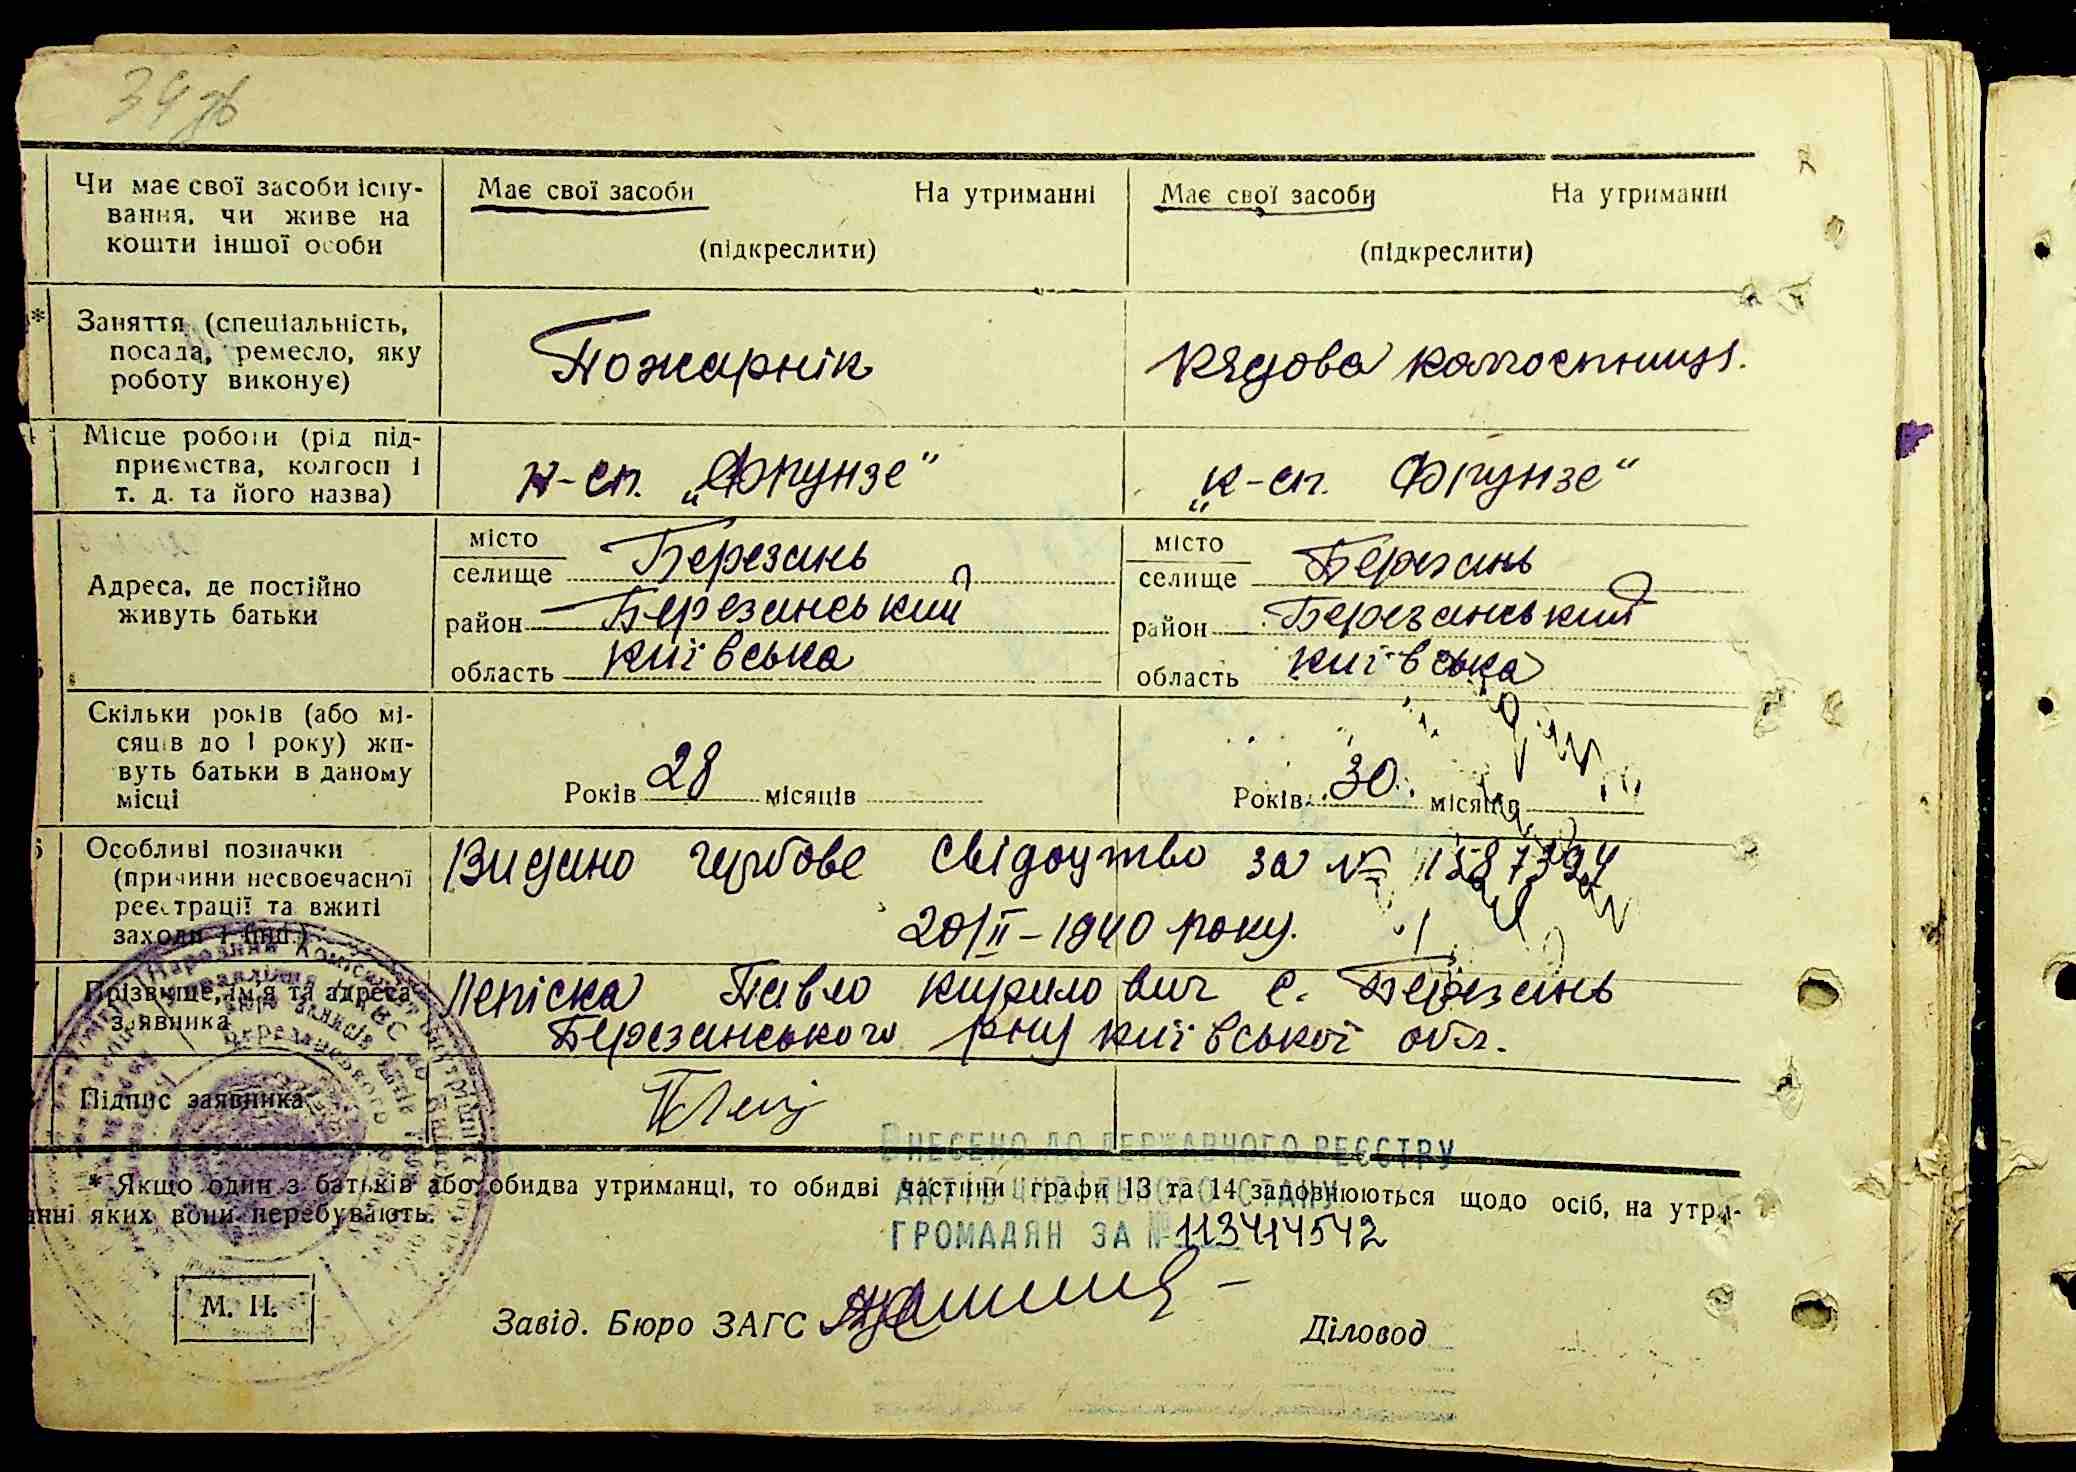 34 зв
Чи має свої засоби існу-
вання, чи живе на
кошти іншої особи
Має свої засоби На утриманні
(підкреслити)
Має свої засоби На утриманні
(підкреслити)
* Заняття (спеціальність,
посада, ремесло, яку
роботу виконує)
Пожарнік
Рядова колгоспниця.
Місце роботи (рід під-
приємства, колгосп і
т. д. та його назва)
к-сп. „Фрунзе“
„к-сп. Фрунзе“
Адреса, де постійно
живуть батьки
місто
селище Березань
район Березанський
область Київська
місто
селище Березань
район Березанський
область Київська
Скільки років (або мі-
сяців до 1 року) жи-
вуть батьки в даному
місці
Років 28 місяців
Років 30 місяців
Особливі позначки
(причини несвоєчасної
реєстрації та вжиті
заходи і інш.)
Видано гербове свідоцтво за № 1587394
20/II – 1940 року.
Прізвище, ім'я та адреса
заявника
Лепіска Павло Кирилович с. Березань
Березанського рну Київської обл.
Підпис заявника
ВНЕСЕНО ДО ДЕРЖАВНОГО РЕЄСТРУ
АКТІВ ЦИВІЛЬНОГО СТАНУ
ГРОМАДЯН ЗА № 113414542
* Якщо один з батьків або обидва утриманці, то обидві частини графи 13 та 14 заповнюються щодо осіб, на утри-
анні яких вони перебувають.
М. П.
Завід. Бюро ЗАГС
Діловод